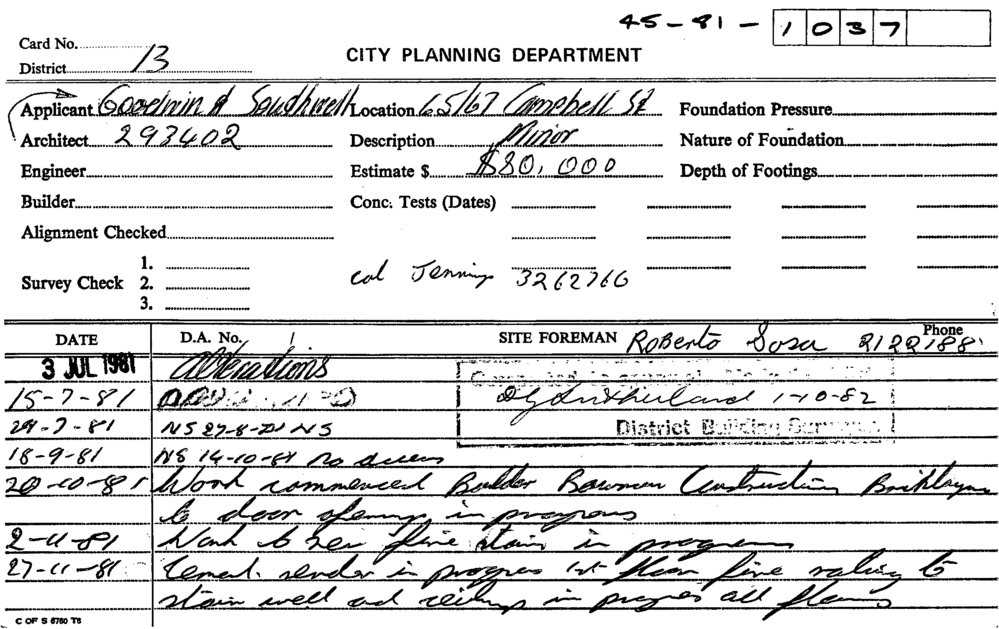 45-81-1037
Card No.
District 13
CITY PLANNING DEPARTMENT
Applicant Goodwin & Southwell Location 65/67 Campbell St Foundation Pressure
Architect 293402 Description Minor Nature of Foundation
Engineer Estimate $ $80,000 Depth of Footings
Builder Conc. Tests (Dates)
Alignment Checked
Survey Check 1. 2. 3.
Col Jennings 3262766
DATE D.A. No. SITE FOREMAN Roberto Sosa Phone 2122188
3 JUL 1981 Alterations
15-7-81 D G Sutherland 1-10-82
29-7-81 NS 27-8-81 NS District Building Surveyor
18-9-81 NS 14-10-81 no access
20-10-81 Work commenced Builder Bowman Construction Bricklaying
to door openings in progress
2-11-81 Work to new fire stairs in progress
27-11-81 Cement render in progress 1st floor fire rating to
stair well and ceilings in progress all floors
C OF S 6780 T6